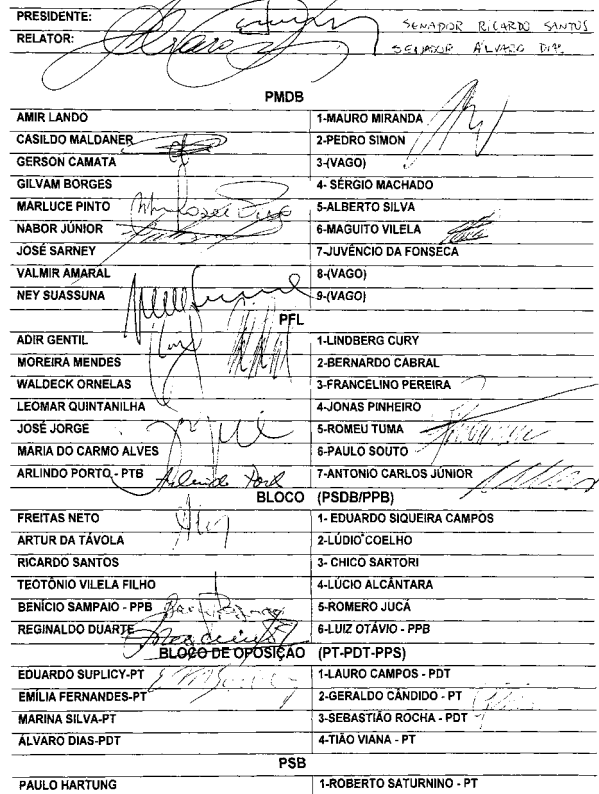 PRESIDENTE: SENADOR RICARDO SANTOS
RELATOR: SENADOR ÁLVARO DIAS
PMDB
AMIR LANDO 1-MAURO MIRANDA
CASILDO MALDANER 2-PEDRO SIMON
GERSON CAMATA 3-(VAGO)
GILVAM BORGES 4- SÉRGIO MACHADO
MARLUCE PINTO 5-ALBERTO SILVA
NABOR JÚNIOR 6-MAGUITO VILELA
JOSÉ SARNEY 7-JUVÊNCIO DA FONSECA
VALMIR AMARAL 8-(VAGO)
NEY SUASSUNA 9-(VAGO)
PFL
ADIR GENTIL 1-LINDBERG CURY
MOREIRA MENDES 2-BERNARDO CABRAL
WALDECK ORNELAS 3-FRANCELINO PEREIRA
LEOMAR QUINTANILHA 4-JONAS PINHEIRO
JOSÉ JORGE 5-ROMEU TUMA
MARIA DO CARMO ALVES 6-PAULO SOUTO
ARLINDO PORTO - PTB 7-ANTONIO CARLOS JÚNIOR
BLOCO (PSDB/PPB)
FREITAS NETO 1- EDUARDO SIQUEIRA CAMPOS
ARTUR DA TÁVOLA 2-LÚDIO COELHO
RICARDO SANTOS 3- CHICO SARTORI
TEOTÔNIO VILELA FILHO 4-LÚCIO ALCÂNTARA
BENÍCIO SAMPAIO - PPB 5-ROMERO JUCÁ
REGINALDO DUARTE 6-LUIZ OTÁVIO - PPB
BLOCO DE OPOSIÇÃO (PT-PDT-PPS)
EDUARDO SUPLICY-PT 1-LAURO CAMPOS - PDT
EMÍLIA FERNANDES-PT 2-GERALDO CÂNDIDO - PT
MARINA SILVA-PT 3-SEBASTIÃO ROCHA - PDT
ÁLVARO DIAS-PDT 4-TIÃO VIANA - PT
PSB
PAULO HARTUNG 1-ROBERTO SATURNINO - PT